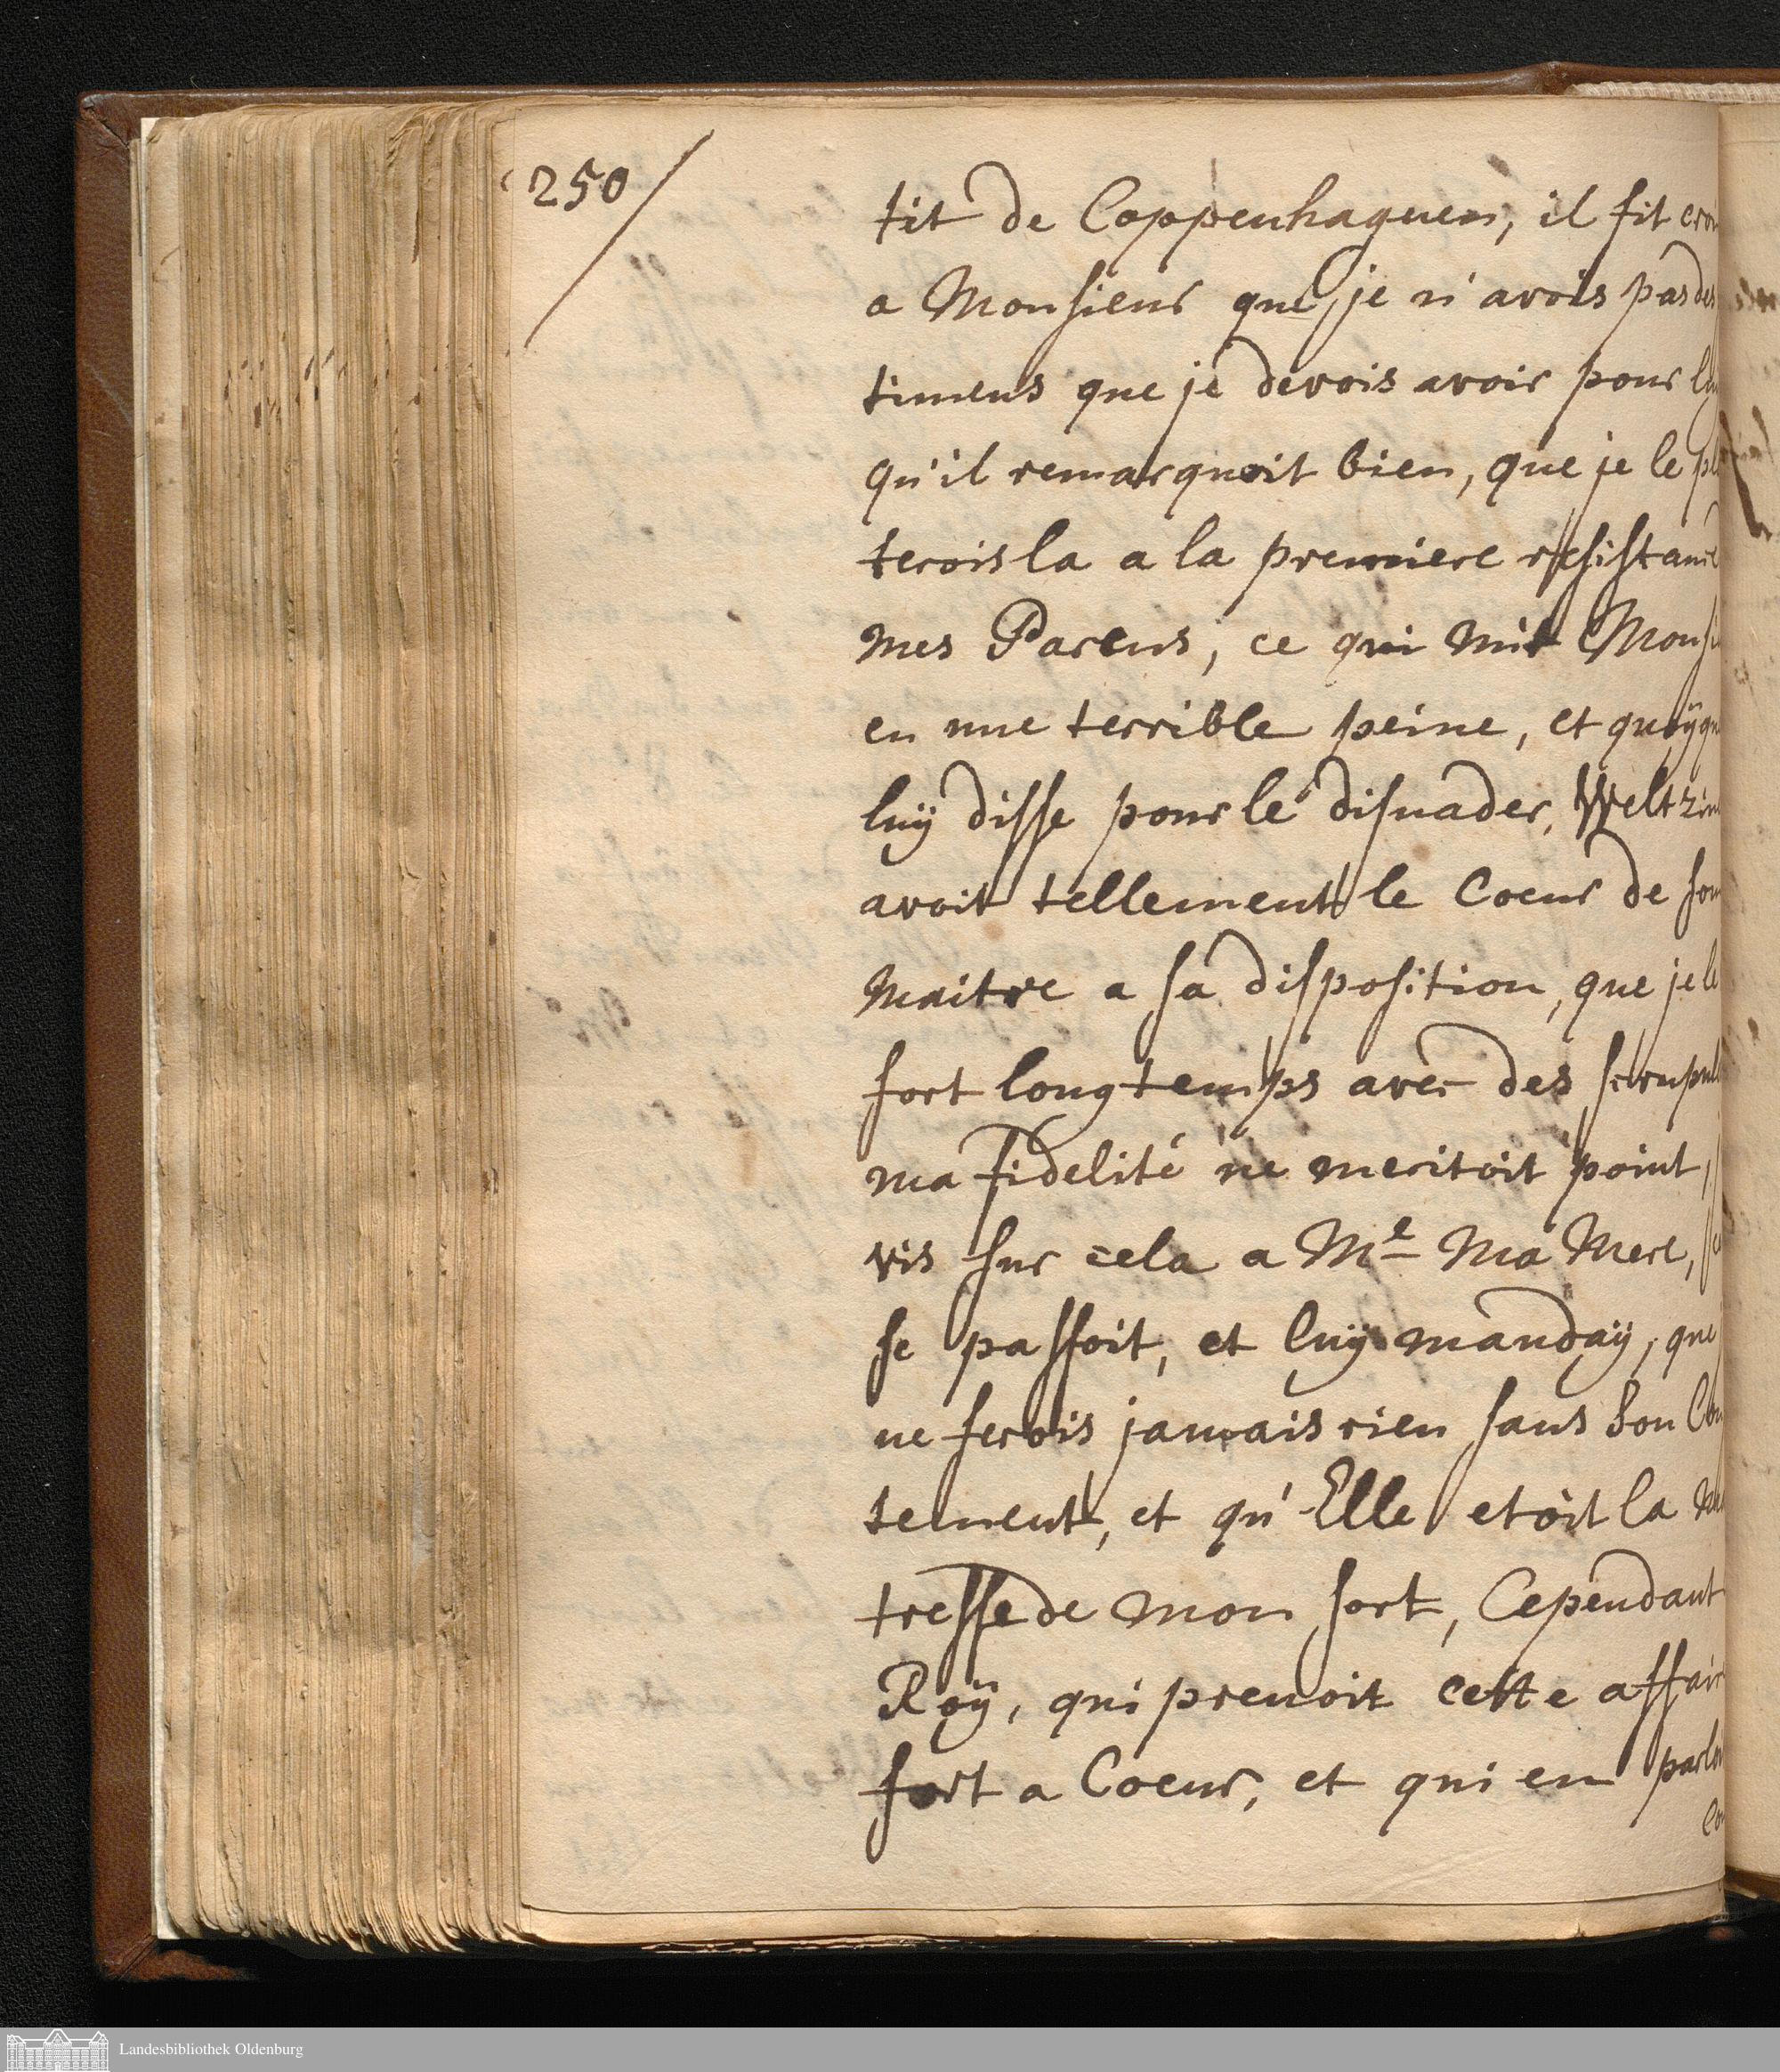 250
tit de Coppenhaguen, il fit croi
a Monsieur que je n'avois pas des
timens que je devois avoir pour luy
qu'il remarquoit bien, que je le pl
terois la a la premiere resistance
mes Parens, ce qui mit Monsi
en une terrible peine, et quoÿqu
luÿ disse pour le disuader, Weltzin
avoit tellement le Coeur de son
maitre a sa disposition, que je le
fort longtemps avec des scrupul
ma fidelité ne meritoit point,
vis sur cela a Me Ma Mere,
se passoit, et luÿ mandaÿ, que
ne ferois jamais rien sans Son Con
tement, et qu'Elle etoit la
tresse de mon sort, Cependant
Roÿ, qui prenoit cette affair
fort a Coeur, et qui en parloi
Landesbibliothek Oldenburg